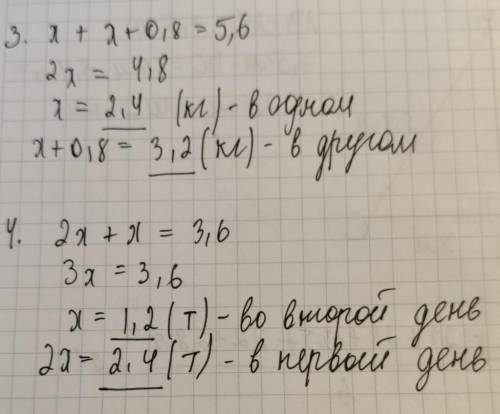 3. x + x + 0,8 = 5,6
2x = 4,8
x = 2,4 (кг) - в одном
x + 0,8 = 3,2 (кг) - в другом
4. 2x + x = 3,6
3x = 3,6
x = 1,2 (т) - во второй день
2x = 2,4 (т) - в первый день